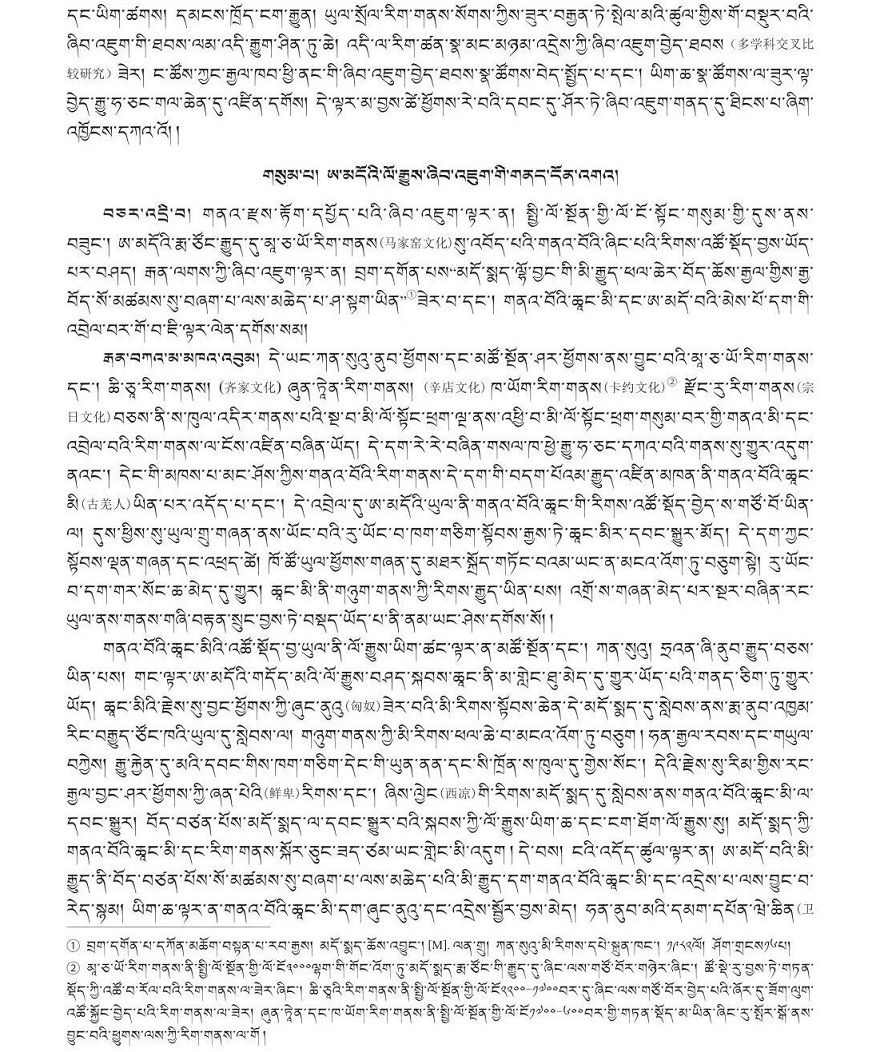 དང་ཡིག་ཚགས། དམངས་ཁྲོད་ངག་རྒྱུན། ཡུལ་སྲོལ་རིག་གནས་སོགས་ཀྱིས་ཟུར་བརྒྱན་ཏེ་སྤེལ་མའི་ཚུལ་གྱིས་གོ་བསྡུར་བའི་
ཞིབ་འཇུག་གི་ཐབས་ལམ་འདི་རྒྱུག་ཤིན་ཏུ་ཆེ། འདི་ལ་རིག་ཚན་སྣ་མང་མཉམ་འདྲེས་ཀྱི་ཞིབ་འཇུག་བྱེད་ཐབས (多学科交叉比
较研究) ཟེར། ང་ཚོས་ཀྱང་རྒྱལ་ཁབ་ཕྱི་ནང་གི་ཞིབ་འཇུག་བྱེད་ཐབས་སྣ་ཚོགས་བེད་སྤྱོད་པ་དང་། ཡིག་ཆ་སྣ་ཚོགས་ལ་ཟུར་ལྟ་
བྱེད་རྒྱུ་ཧ་ཅང་གལ་ཆེན་དུ་འཛིན་དགོས། དེ་ལྟར་མ་བྱས་ཚེ་ཕྱོགས་རེ་བའི་དབང་དུ་ཤོར་ཏེ་ཞིབ་འཇུག་གནད་དུ་ཐིངས་པ་ཞིག་
འཁྱོངས་དཀའ་འོ། །
གསུམ་པ། ཨ་མདོའི་ལོ་རྒྱུས་ཞིབ་འཇུག་གི་གནད་དོན་འགའ།
བཅར་འདྲི་བ། གནའ་རྫས་རྟོག་དཔྱོད་པའི་ཞིབ་འཇུག་ལྟར་ན། སྤྱི་ལོ་སྔོན་གྱི་ལོ་ངོ་སྟོང་གསུམ་གྱི་དུས་ནས་
བཟུང་། ཨ་མདོའི་རྨ་ཙོང་རྒྱུད་དུ་མཱ་ཅ་ཡོ་རིག་གནས(马家窑文化)སུ་འབོད་པའི་གནའ་བོའི་ཞིང་པའི་རིགས་འཚོ་སྡོད་བྱས་ཡོད་
པར་བཤད། རྒན་ལགས་ཀྱི་ཞིབ་འཇུག་ལྟར་ན། བྲག་དགོན་པས“མདོ་སྨད་ལྷོ་བྱང་གི་མི་རྒྱུད་ཕལ་ཆེར་བོད་ཆོས་རྒྱལ་གྱིས་རྒྱ་
བོད་སོ་མཚམས་སུ་བཞག་པ་ལས་མཆེད་པ་ཤ་སྟག་ཡིན”①ཟེར་བ་དང་། གནའ་བོའི་ཆང་མི་དང་ཨ་མདོ་བའི་མེས་པོ་དག་གི་
འབྲེལ་བར་གོ་བ་ཇི་ལྟར་ལེན་དགོས་སམ།
རྒན་བཀའ་མ་མཁའ་འབུམ། དེ་ཡང་ཀན་སུའུ་ནུབ་ཕྱོགས་དང་མཚོ་སྔོན་ཤར་ཕྱོགས་ནས་བྱུང་བའི་མཱ་ཅ་ཡོ་རིག་གནས་
དང་། ཆི་ཅཱ་རིག་གནས། (齐家文化) ཞུན་ཏེན་རིག་གནས། (辛店文化) ཁ་ཡོག་རིག་གནས(卡约文化)② རྫོང་རུ་རིག་གནས(宗
日文化)བཅས་ནི་ས་ཁུལ་འདིར་གནས་པའི་སྔ་བ་མི་ལོ་སྟོང་ཕྲག་ལྔ་ནས་འཕྱི་བ་མི་ལོ་སྟོང་ཕྲག་གསུམ་བར་གྱི་གནའ་མི་དང་
འབྲེལ་བའི་རིག་གནས་ལ་ངོས་འཛིན་བཞིན་ཡོད། དེ་དག་རེ་རེ་བཞིན་གསལ་ཁ་ཕྱེ་རྒྱུ་ཧ་ཅང་དཀའ་བའི་གནས་སུ་གྱུར་འདུག་
ནའང་། དེང་གི་མཁས་པ་མང་ཤོས་ཀྱིས་གནའ་བོའི་རིག་གནས་དེ་དག་གི་བདག་པོའམ་རྒྱུད་འཛིན་མཁན་ནི་གནའ་བོའི་ཆང་
མི(古羌人)ཡིན་པར་འདོད་པ་དང་། དེ་འབྲེལ་དུ་ཨ་མདོའི་ཡུལ་ནི་གནའ་བོའི་ཆང་གི་རིགས་འཚོ་སྡོད་བྱེད་ས་གཙོ་བོ་ཡིན་
ལ། དུས་ཕྱིས་སུ་ཡུལ་གྲུ་གཞན་ནས་ཡོང་བའི་རུ་ཡོང་བ་ཁག་གཅིག་སྟོབས་རྒྱས་ཏེ་ཆང་མིར་དབང་སྒྱུར་མོད། དེ་དག་ཀྱང་
སྟོབས་ལྡན་གཞན་དང་འཕྲད་ཚེ། ཁོ་ཚོ་ཡུལ་ཕྱོགས་གཞན་དུ་མཐར་སྐྲོད་གཏོང་བའམ་ཡང་ན་མངའ་འོག་ཏུ་བཅུག་སྟེ། རུ་ཡོང་
བ་དག་གར་སོང་ཆ་མེད་དུ་གྱུར། ཆང་མི་ནི་གཉུག་གནས་ཀྱི་རིགས་རྒྱུད་ཡིན་པས། འགྲོ་ས་གཞན་མེད་པར་སྔར་བཞིན་རང་
ཡུལ་ནས་གནས་གཞི་བརྟན་སྲུང་བྱས་ཏེ་བསྡད་ཡོད་པ་ནི་ནམ་ཡང་ཤེས་དགོས་སོ། །
གནའ་བོའི་ཆང་མིའི་འཚོ་སྡོད་བྱ་ཡུལ་ནི་ལོ་རྒྱུས་ཡིག་ཚང་ལྟར་ན་མཚོ་སྔོན་དང་། ཀན་སུའུ། ཧྲའན་ཞི་ནུབ་རྒྱུད་བཅས་
ཡིན་པས། གང་ལྟར་ཨ་མདོའི་གདོད་མའི་ལོ་རྒྱུས་བཤད་སྐབས་ཆང་ནི་མ་གླེང་ཐུ་མེད་དུ་གྱུར་ཡོད་པའི་གནད་ཅིག་ཏུ་གྱུར་
ཡོད། ཆང་མིའི་རྗེས་སུ་བྱང་ཕྱོགས་ཀྱི་ཞུང་ནུའུ(匈奴)ཟེར་བའི་མི་རིགས་སྟོབས་ཆེན་དེ་མདོ་སྨད་དུ་སླེབས་ནས་རྨ་ནུབ་འཁྱམ་
རིང་བརྒྱུད་ཙོང་ཁའི་ཡུལ་དུ་སླེབས་ལ། གཉུག་གནས་ཀྱི་མི་རིགས་ཕལ་ཆེ་བ་མངའ་འོག་ཏུ་བཅུག །ཧན་རྒྱལ་རབས་དང་གཡུལ་
བཀྱེས། རྒྱུ་རྐྱེན་དུ་མའི་དབང་གིས་ཁག་གཅིག་དེང་གི་ཡུན་ནན་དང་སི་ཁྲོན་ས་ཁུལ་དུ་གྱེས་སོང་། དེའི་རྗེས་སུ་རིམ་གྱིས་རང་
རྒྱལ་བྱང་ཤར་ཕྱོགས་ཀྱི་ཞན་པེའི(鲜卑)རིགས་དང་། ཞིས་ལྱེང(西凉)གི་རིགས་མདོ་སྨད་དུ་སླེབས་ནས་གནའ་བོའི་ཆང་མི་ལ་
དབང་སྒྱུར། བོད་བཙན་པོས་མདོ་སྨད་ལ་དབང་སྒྱུར་བའི་སྐབས་ཀྱི་ལོ་རྒྱུས་ཡིག་ཆ་དང་ངག་ཐོག་ལོ་རྒྱུས་སུ། མདོ་སྨད་ཀྱི་
གནའ་བོའི་ཆང་མི་དང་རིག་གནས་སྐོར་ཅུང་ཟད་ཙམ་ཡང་གླེང་མི་འདུག །དེ་བས། ངའི་འདོད་ཚུལ་ལྟར་ན། ཨ་མདོ་བའི་མི་
རྒྱུད་ནི་བོད་བཙན་པོས་སོ་མཚམས་སུ་བཞག་པ་ལས་མཆེད་པའི་མི་རྒྱུད་དག་གནའ་བོའི་ཆང་མི་དང་འདྲེས་པ་ལས་བྱུང་བ་
རེད་སྙམ། ཡིག་ཆ་ལྟར་ན་གནའ་བོའི་ཆང་མི་དག་ཞུང་ནུའུ་དང་འདྲེས་སྦྱོར་བྱས་མེད། ཧན་ནུབ་མའི་དམག་དཔོན་ཝེ་ཆིན(卫
① བྲག་དགོན་པ་དཀོན་མཆོག་བསྟན་པ་རབ་རྒྱས། མདོ་སྨད་ཆོས་འབྱུང་། [M]. ལན་གྲུ། ཀན་སུའུ་མི་རིགས་དཔེ་སྐྲུན་ཁང་། ༡༩༨༢ལོ། ཤོག་གྲངས༡༦པ།
② མཱ་ཅ་ཡོ་རིག་གནས་ནི་སྤྱི་ལོ་སྔོན་གྱི་ལོ་ངོ༣༠༠༠ལྷག་གི་གོང་འོག་ཏུ་མདོ་སྨད་རྨ་ཙོང་གི་རྒྱུད་དུ་ཞིང་ལས་གཙོ་བོར་གཉེར་ཞིང་། ཚོ་སྡེ་རུ་བྱས་ཏེ་གཏན་
སྡོད་ཀྱི་འཚོ་བ་རོལ་བའི་རིག་གནས་ལ་ཟེར་ཞིང་། ཆི་ཅཱའི་རིག་གནས་ནི་སྤྱི་ལོ་སྔོན་གྱི་ལོ་ངོ༢༢༠༠-༡༧༠༠བར་དུ་ཞིང་ལས་གཙོ་བོར་བྱེད་པའི་ཞོར་དུ་ཟོག་ལུག་
འཚོ་སྐྱོང་བྱེད་པའི་རིག་གནས་ལ་ཟེར། ཞུན་ཏེན་དང་ཁ་ཡོག་རིག་གནས་ནི་སྤྱི་ལོ་སྔོན་གྱི་ལོ་ངོ༡༧༠༠-༦༠༠བར་གྱི་གཏན་སྡོད་མ་ཡིན་ཞིང་རུ་སྤོར་སྒོ་ནས་
བྱུང་བའི་ཕྱུགས་ལས་ཀྱི་རིག་གནས་ལ་གོ །